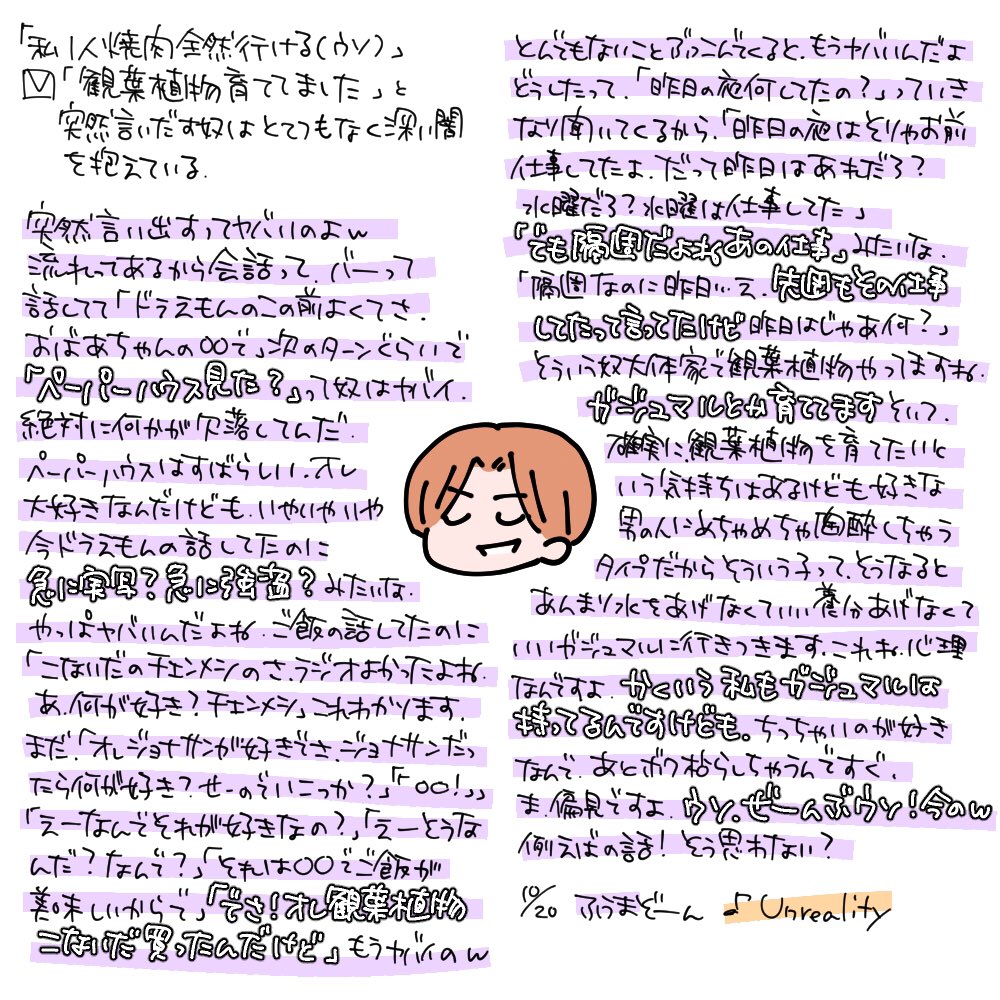 「私1人焼肉全然行ける(ウソ)」
「観葉植物育ててました」と
突然言いだす奴はとてつもなく深い闇
を抱えている.
突然言い出すってヤバいのよw
流れってあるから会話って、バーって
話してて「ドラえもんのこの前よくてさ.
おばあちゃんの○○で」次のターンぐらいで
「ペーパーハウス見た?」って奴はヤバイ.
絶対に何かが欠落してんだ.
ペーパーハウスはすばらしい.オレ
大好きなんだけども.いやいやいや
今ドラえもんの話してたのに
急に実写?急に強盗?みたいな.
やっぱヤバいんだよね.ご飯の話してたのに
「こないだのチェンメンのさ.ラジオよかったよね.
あ.何が好き?チェンメン」これわかります.
まだ「オレジョナサンが好きでさ.ジョナサンだっ
たら何が好き?せーのでいこっか?」「「○○!」」
「えーなんでそれが好きなの?」「えーそうな
んだ?なんで?」「それは○○でご飯が
美味しいからで」「でさ!オレ観葉植物
こないだ買ったんだけど」もうヤバイのw
とんでもないことぶっこんでくると.もうヤバいんだよ
どうしたって.「昨日の夜何してたの?」っていき
なり聞いてくるから.「昨日の夜はそりゃお前
仕事してたよ.だって昨日はあれだろ?
水曜だろ?水曜は仕事してた」
「でも隔週だよねあの仕事」みたいな.
「隔週なのに昨日…え.先週もその仕事
してたって言ってたけど昨日はじゃあ何?」
そういう奴大体家で観葉植物やってますね.
ガジュマルとか育ててますそいつ.
確実に.観葉植物を育てたいと
いう気持ちはあるけども好きな
男の人にめちゃめちゃ陶酔しちゃう
タイプだからそういう子って.そうなると
あんまり水をあげなくていい養分あげなくて
いいガジュマルに行きつきます.これね.心理
なんですよ.かくいう私もガジュマルは
持ってるんですけども。ちっちゃいのが好き
なんで.あとボク枯らしちゃうんですぐ.
ま.偏見ですよ.ウソ.ぜーんぶウソ!今のw
例えばの話!そう思わない?
10/20 ふうまぞーん ♪Unreality